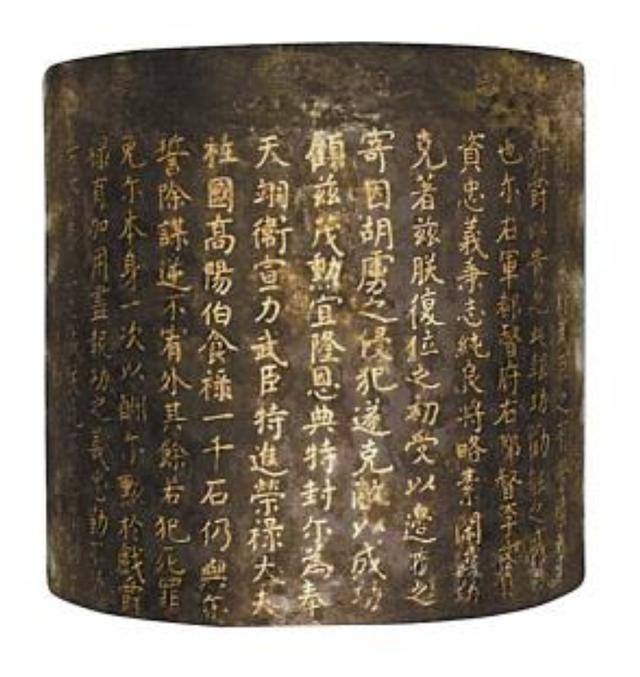 爵以貴之此報功勸
也尔右軍都督府右都督李
資忠義秉志純良將略素閑
克著兹朕復位之初受以邊方之
寄因胡虜之侵犯遂克敵以成功
顧兹茂勲宜隆恩典特封尔為奉
天翊衛宣力武臣特進榮禄大夫
柱國高陽伯食禄一千石仍與尔
誓除謀逆不宥外其餘若犯死罪
免尔本身一次以酬尔勲於戱爵
禄有加用盡報功之義忠勤